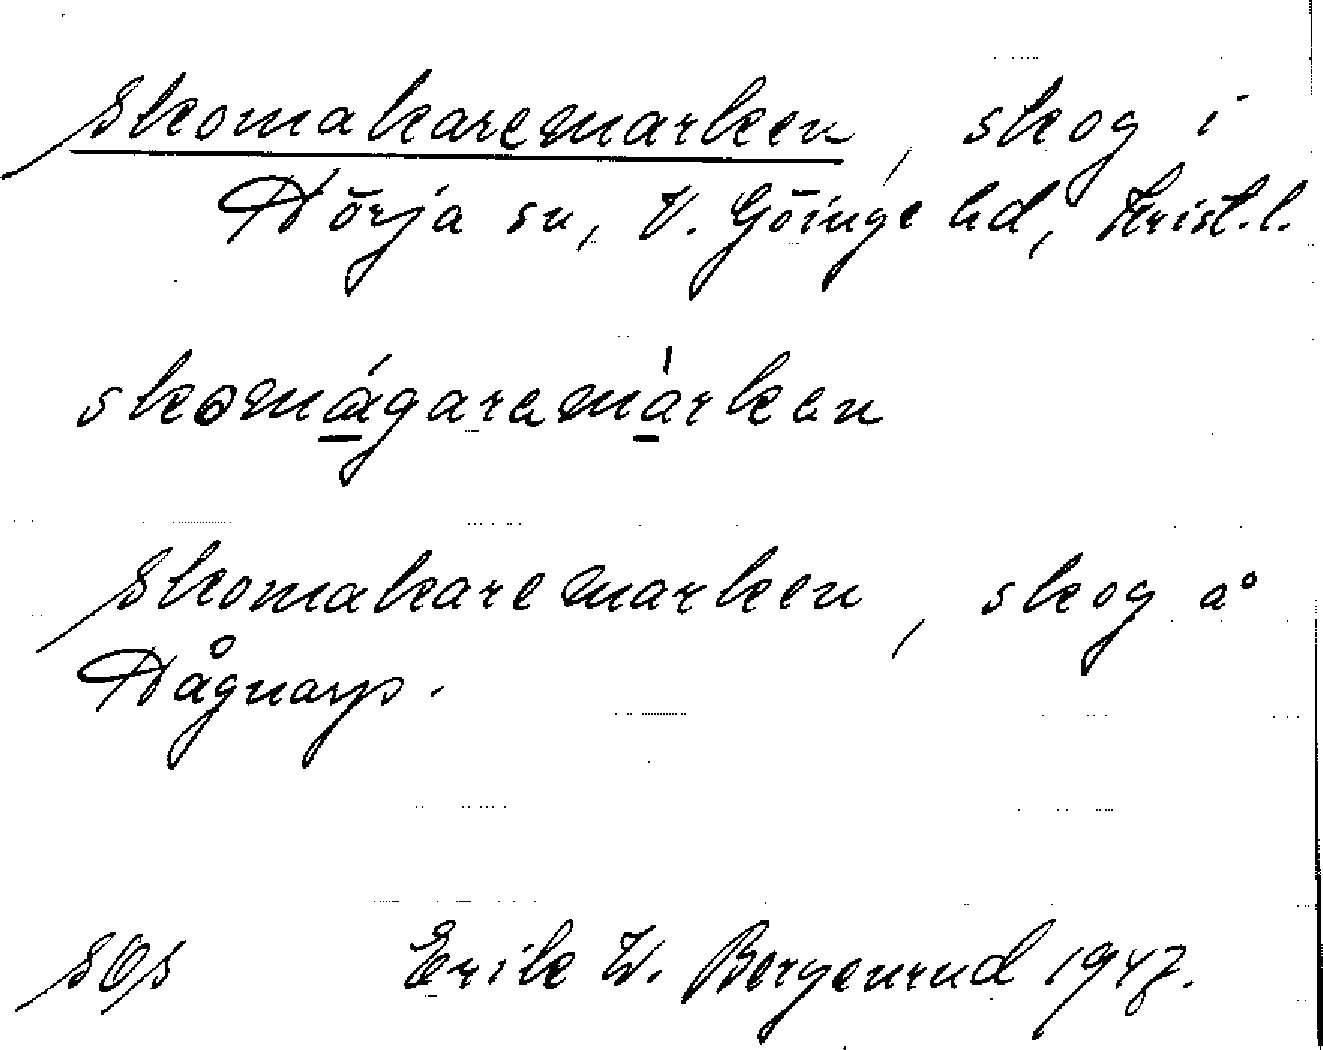 Skomakaremarken, skog i
Nörja sn, V. Göinge hd, Krist. l.
skomágaremárken
Skomakaremarken, skog å
Hågnarp.
SOS Erik W. Bergenrud 1947.